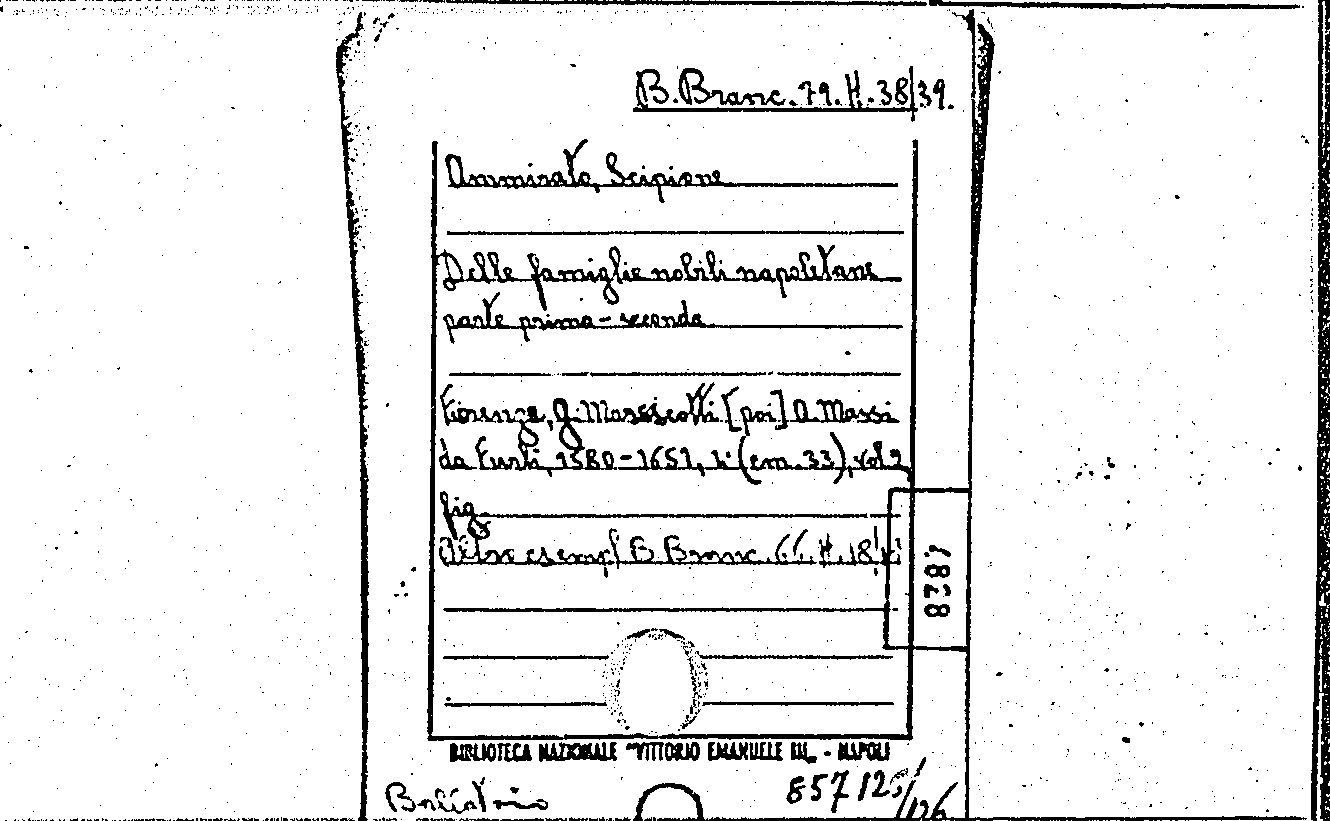 B. Branc. 79. H. 38/39.
Ammirato, Scipione
Delle famiglie nobili napoletane
parte prima - seconda
Fiorenza, G. Marescotti [poi] A. Massi
da Furli, 1580-1651, 4° (cm. 33), vol 2
fig.
Altro esempl. B. Branc. 
8387
BIBLIOTECA NAZIONALE "VITTORIO EMANUELE III„ - NAPOLI
857125/126